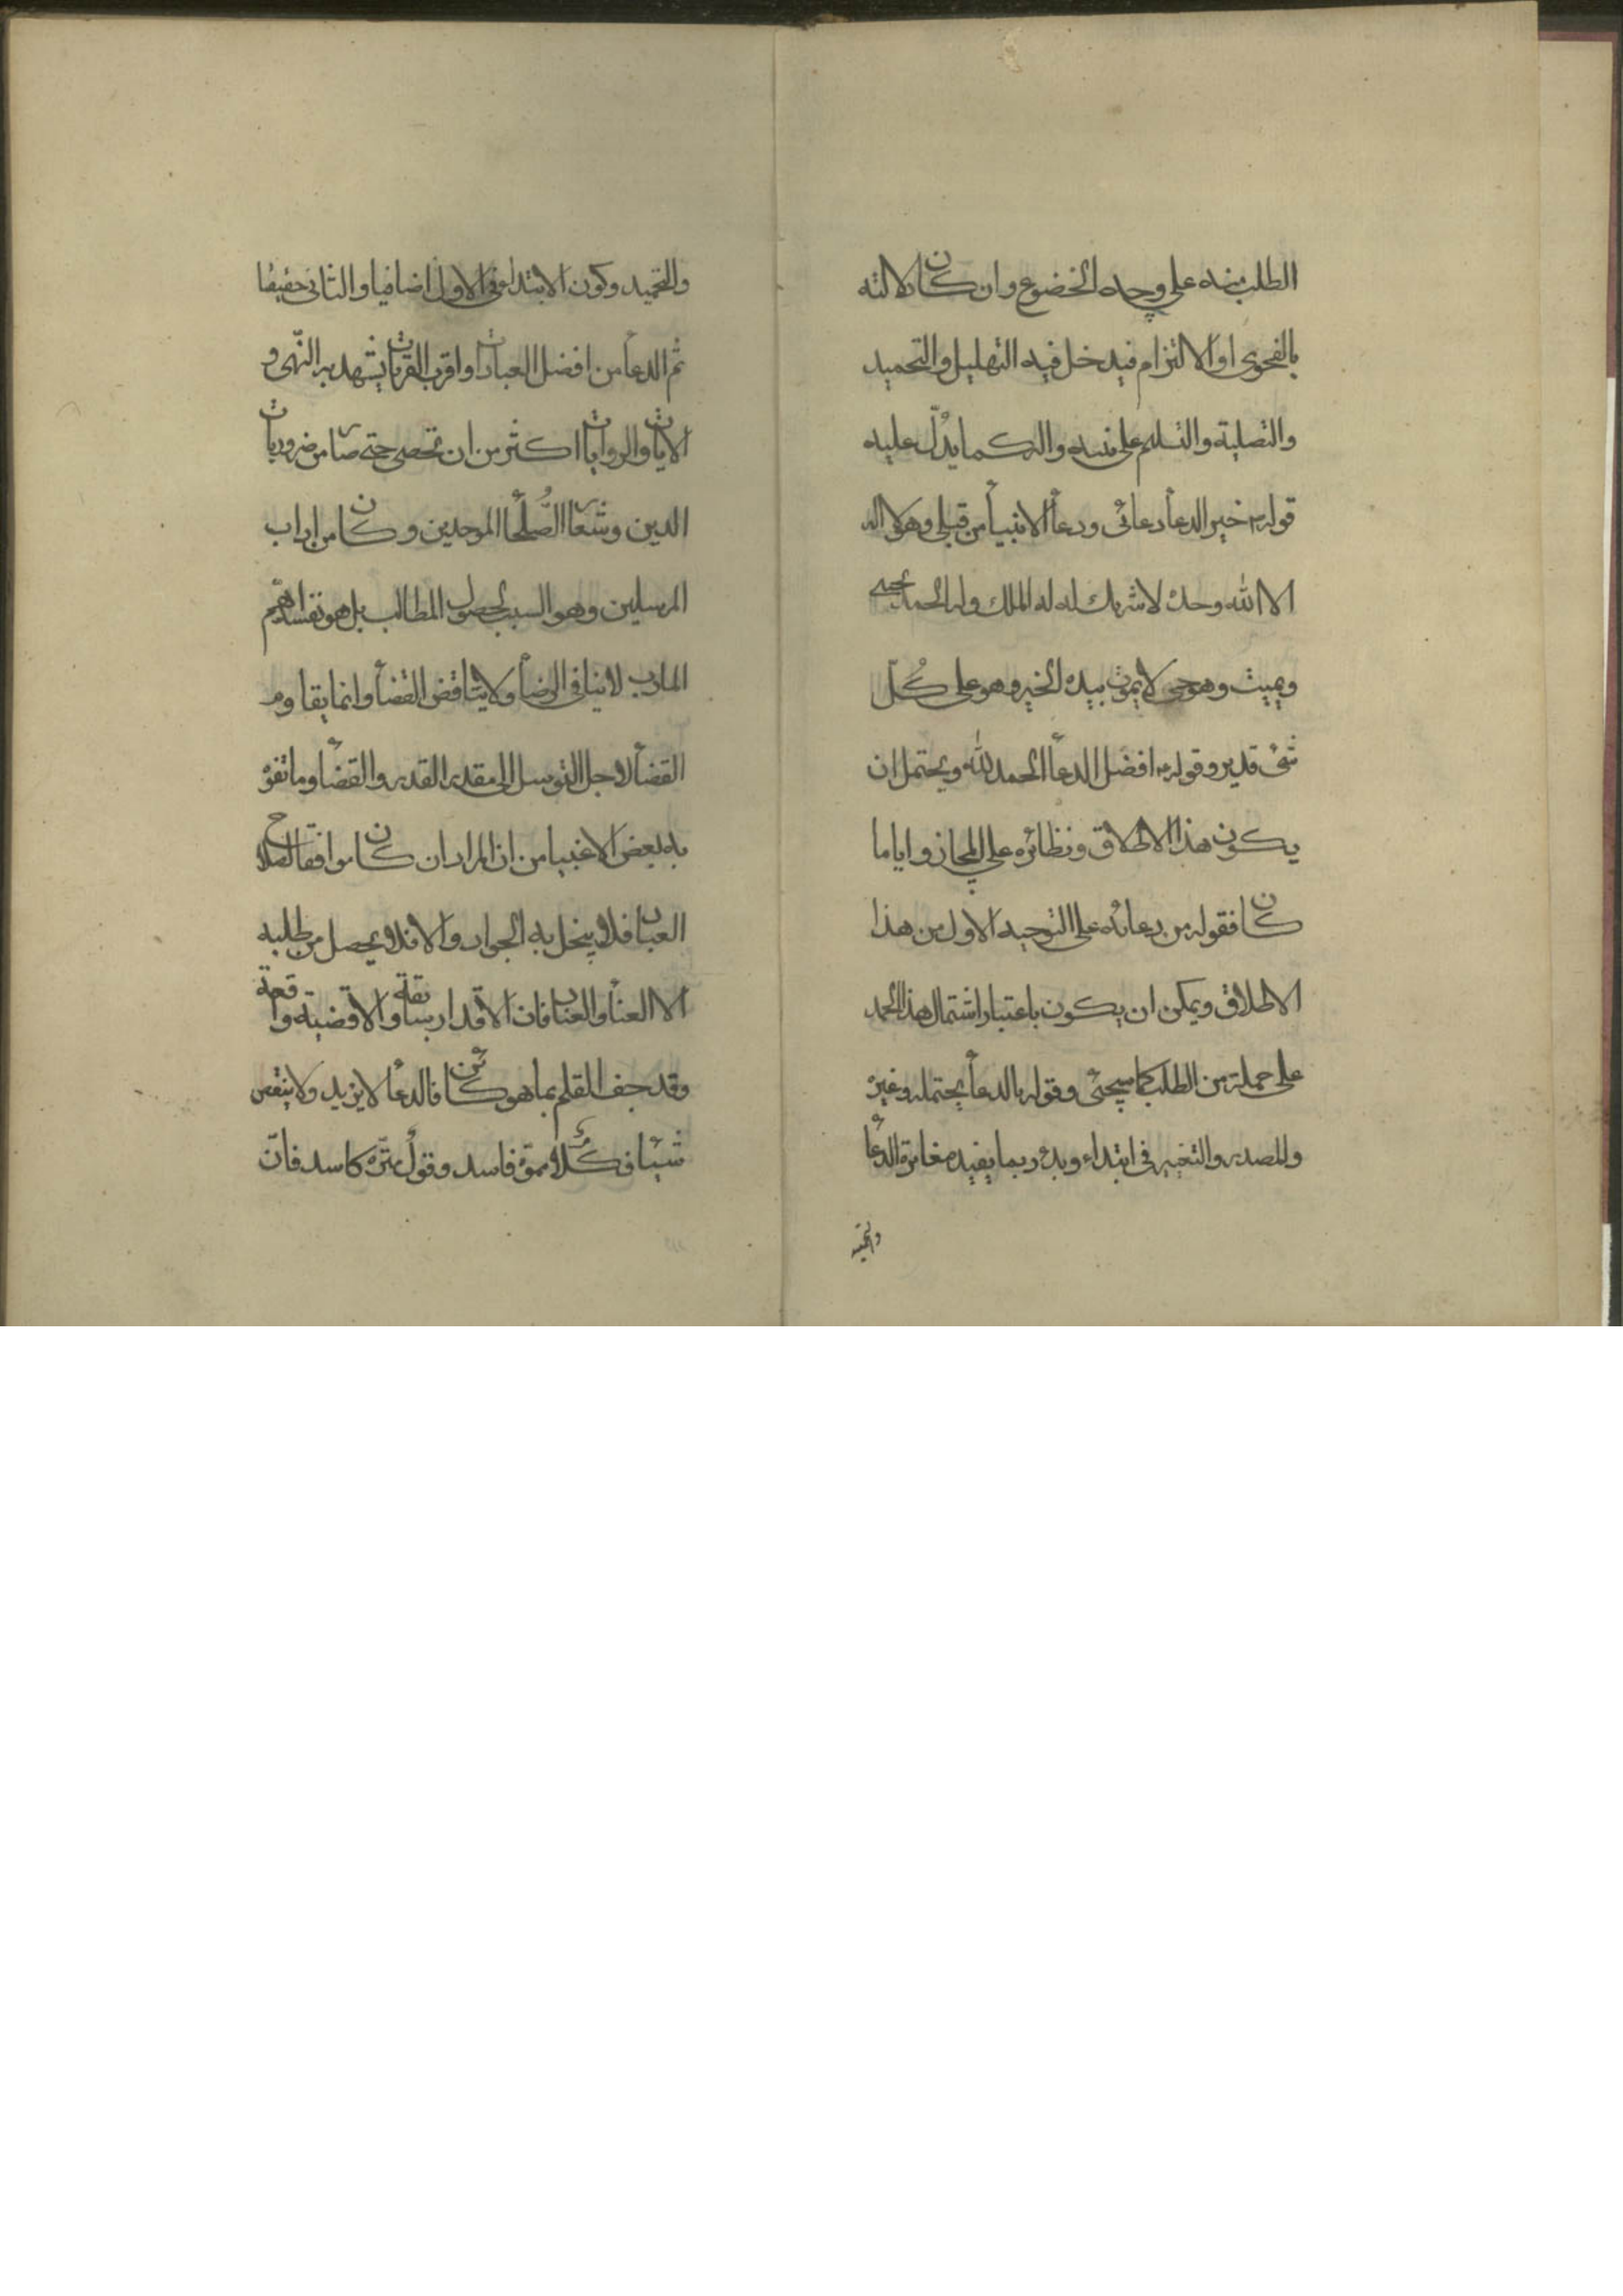 الطلب منه على وجه الخضوع وان كان دلالته
بالفحوى او الالتزام فيدخل فيه التهليل والتحميد
والتصلية والتسليم على نبيه واله كما يدلّ عليه
قوله خير الدعأ دعائى ودعأ الانبيأ من قبلى وهو لا اله
الا الله وحده لا شريك له له الملك وله الحمد يحيى
ويميت وهو حى لا يموت بيده الخير وهو على كُلّ
شئ قدير وقوله افضل الدعأ الحمد لله ويحتمل ان
يكون هذا الاطلاق ونظائره على المجاز واياما
كان فقوله من دعائه على التوجيه الاول من هذا
الاطلاق ويمكن ان يكون باعتبار اشتمال هذا الحمد
على جملة من الطلب كما سيجئ وقوله بالدعأ يحتمله وغيره
وللمصدر والتغيير فى ابتداء وبدء ربما يفيد مغايرة الدعأ
والتحميد
والتحميد وكون الابتداء فى الاول اضافيا والثانى حقيقا
ثم الدعأ من افضل العبادات واقرب القربات يشهد به النهى و
الايات والروايات اكثر من ان تحصى حتى صار من ضروريات
الدين وشعار الصُّلحأ الموحدين وكان من اداب
المرسلين وهو السبب لحصول المطالب بل هو نفسه اهم
المارب لا ينافى الرضأ ولا يناقض القضأ وانما يقاوم
القضأ لاجل التوسل الى مقدر القدر والقضأ وما تفوه
به بعض الاغبيا من ان المراد ان كان موافقا لصلاح
العباد فلا يبخل به الجواد والا فلا ويحصل من طلبه
الا العنأ والعناد فان الاقدار سابقة والاقضية واقعة
وقد جف القلم بما هو كائن فالدعأ لا يزيد ولا ينقص
شيئا فكلام مموّه فاسد وقول متره كاسد فانّ